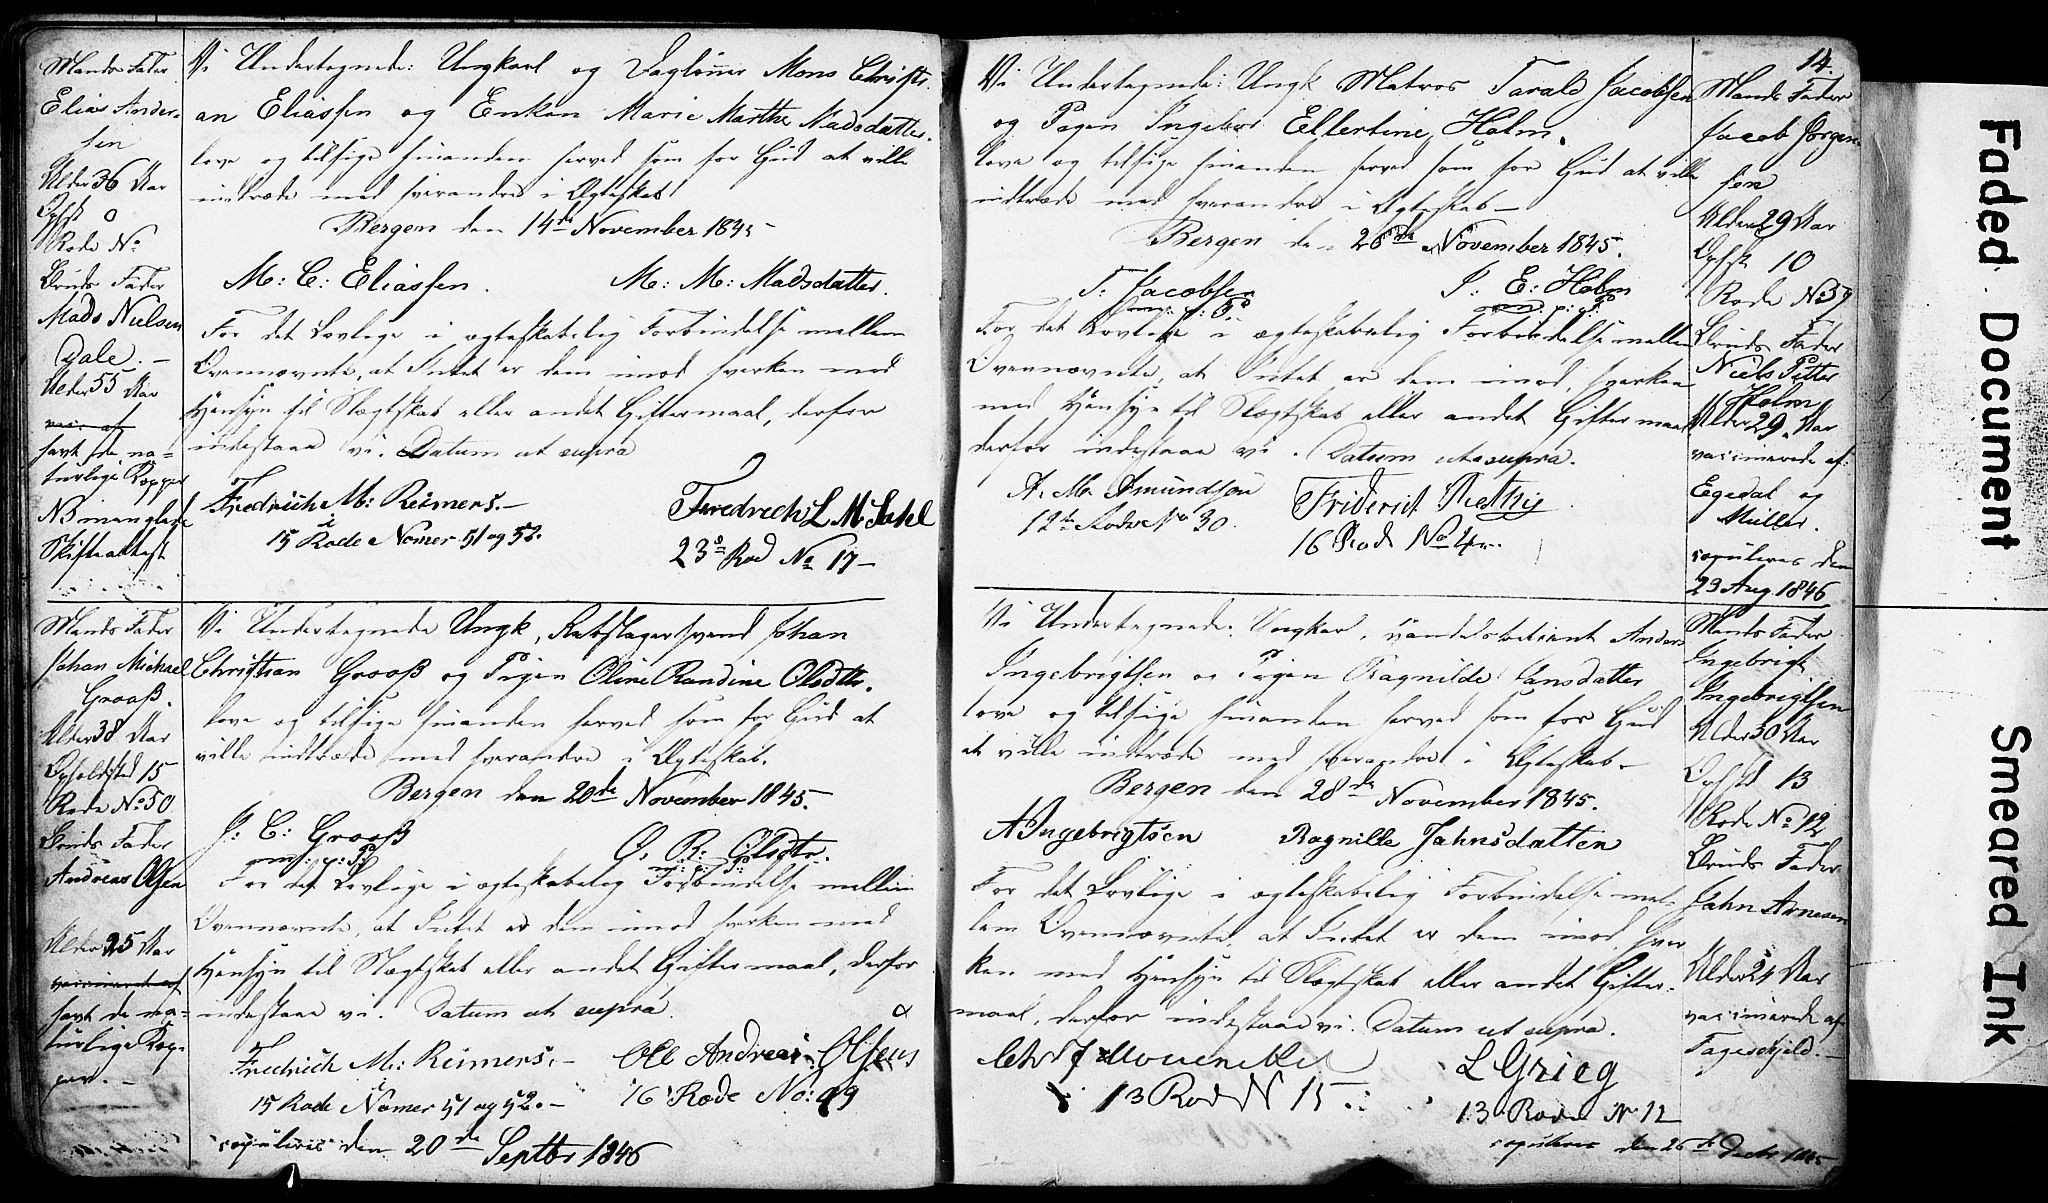 Mands Fader
Elias Ander-
sen
Alder 36 Aar
Opst 0
Rode No
Bruds Fader
Mads Nielsen
Dale. —
Alder 55 Aar
havt de na-
turlige Kopper
NB manglede
Skifteattest
Vi Undertegnede: Ungkarl og Dagløner Mons Christi-
an Eliassen og Enken Marie Marthe Madsdatter.
love og tilsige hinanden herved som for Gud at ville
indtræde med hverandre i Ægteskab
Bergen den 14de November 1845 –
M: C: Eliassen. M: M: Madsdatter.
For det Lovlige i ægteskabelig Forbindelse mellem
Ovennævnte, at Intet er dem imod hverken med
Hensyn til Slægtskab eller andet Giftermaal, derfor
indestaae vi. Datum ut supra
Fredrich M: Reimers. – Fredrich L M Dahl
15 Rode Nomer 51 og 52. 23de Rod No 17 –
Mands Fader
Johan Michael
Grooß.
Alder 38 Aar
Opholdsted 15
Rode No 50
Bruds Fader
Andreas Olsen
Alder 25 Aar
vaccineret af
havt de na-
turlige Kop-
per. –
Vi Undertegnede Ungk, Rebslagersvend Johan
Christian Grooß og Pigen Oline Randine Olsdtr.
love og tilsige hinanden herved som for Gud at
ville indtræde med hverandre i Ægteskab.
Bergen den 20de November 1845.
J: C: Grooß O. R: Olsdtr.
m: p: P:
For det Lovlige i ægteskabelig Forbindelse mellem
Ovennævnte, at Intet er dem imod hverken med
Hensyn til Slægtskab eller andet Giftermaal, derfor
indestaae vi. Datum ut supra
Fredrich M: Reimers. – Ole Andreas Olsen
15 Rode Nomer 51 og 52. – 16 Rode No:
copuleres den 20de Septbr 1846
14.
Vi Undertegnede: Ungk Matros Tarald Jacobsen
og Pigen Ingebor Ellertine Holm.
love og tilsige hinanden herved som for Gud at ville
indtræde med hverandre i Ægteskab –
Bergen den 26de November 1845.
T: Jacobsen I: E: Holm
m. p: P: m. p: P:
For det Lovlige i ægteskabelig Forbindelse mellem
Ovennævnte, at Intet er dem imod, hverken
med Hensyn til Slægtskab eller andet Giftermaal
derfor indestaae vi. Datum ut supra.
A. M. Amundson Friderich
12te Rode No 30. 16 Rode No 4
Mands Fader
Jacob Jørgen-
sen
Alder 29 Aar
Opst 10
Rode No 59
Bruds Fader
Niels Petter
Holm
Alder 29. Aar
vaccinerede af:
Egedal og
Müller.
copuleres den
23 Aug 1846
Vi Undertegnede: Ungkar, Handelsbetient Anders
Ingebrigtsen og Pigen Ragnilde Jansdatter
love og tilsige hinanden herved som for Gud
at ville indtræde med hverandre i Ægteskab –
Bergen den 28de November 1845.
A Ingebrigtsen Ragnille Jahnsdatten
For det Lovlige i ægteskabelig Forbindelse mel-
lem Ovennævnte, at Intet er dem imod, hver-
ken med Hensyn til Slægtskab eller andet Gifter-
maal, derfor indestaae vi. Datum ut supra.
L Grieg
13 Rode N 15 13 Rode N 12
copuleres den 26de Decbr 1845
Mands Fader
Ingebrigt
Ingebrigtsen
Alder 30 Aar
Opst 13
Rode No 12
Bruds Fader
Jahn Arnesen
Alder 24 Aar
vaccinerede af
Fageskjold. –
Faded Document
Smeared Ink